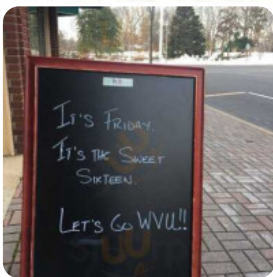 It's Friday.
It's the Sweet
Sixteen.
Let's Go WVU!!